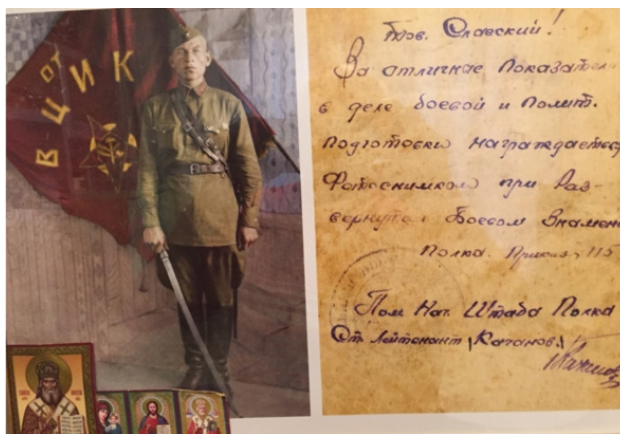 от
ВЦИК
Тов. Славский!
За отличные показатели
в деле боевой и Полит.
подготовки награждается
Фотоснимком при Раз-
вернутом Боевом Знамени
Полка. Приказ 115
Пом Нач. Штаба Полка
Ст. Лейтенант (Качанов.)